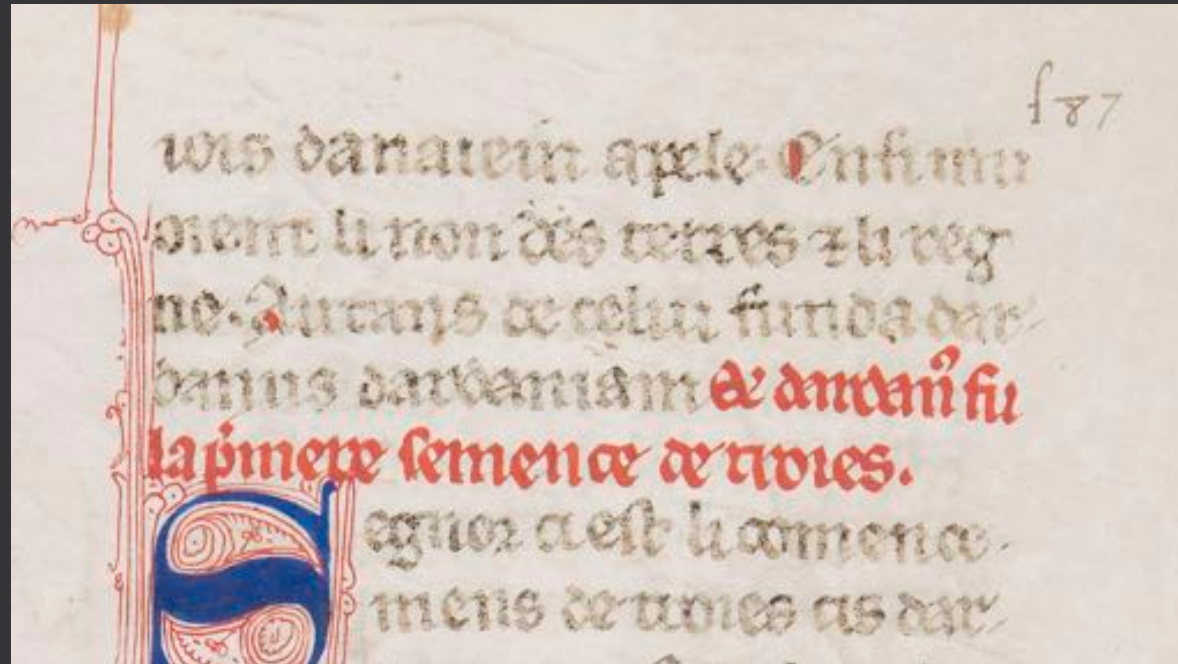 f 87
iois danaiein apele. Ensi mu
oient li non des terres ⁊ li reg
ne. Autrais de celui funda dar
danus dardaniam Et dardan᷒ fu
la p̍miere semence de troies.
Segnor ci est li comence
mens de troies cis dar